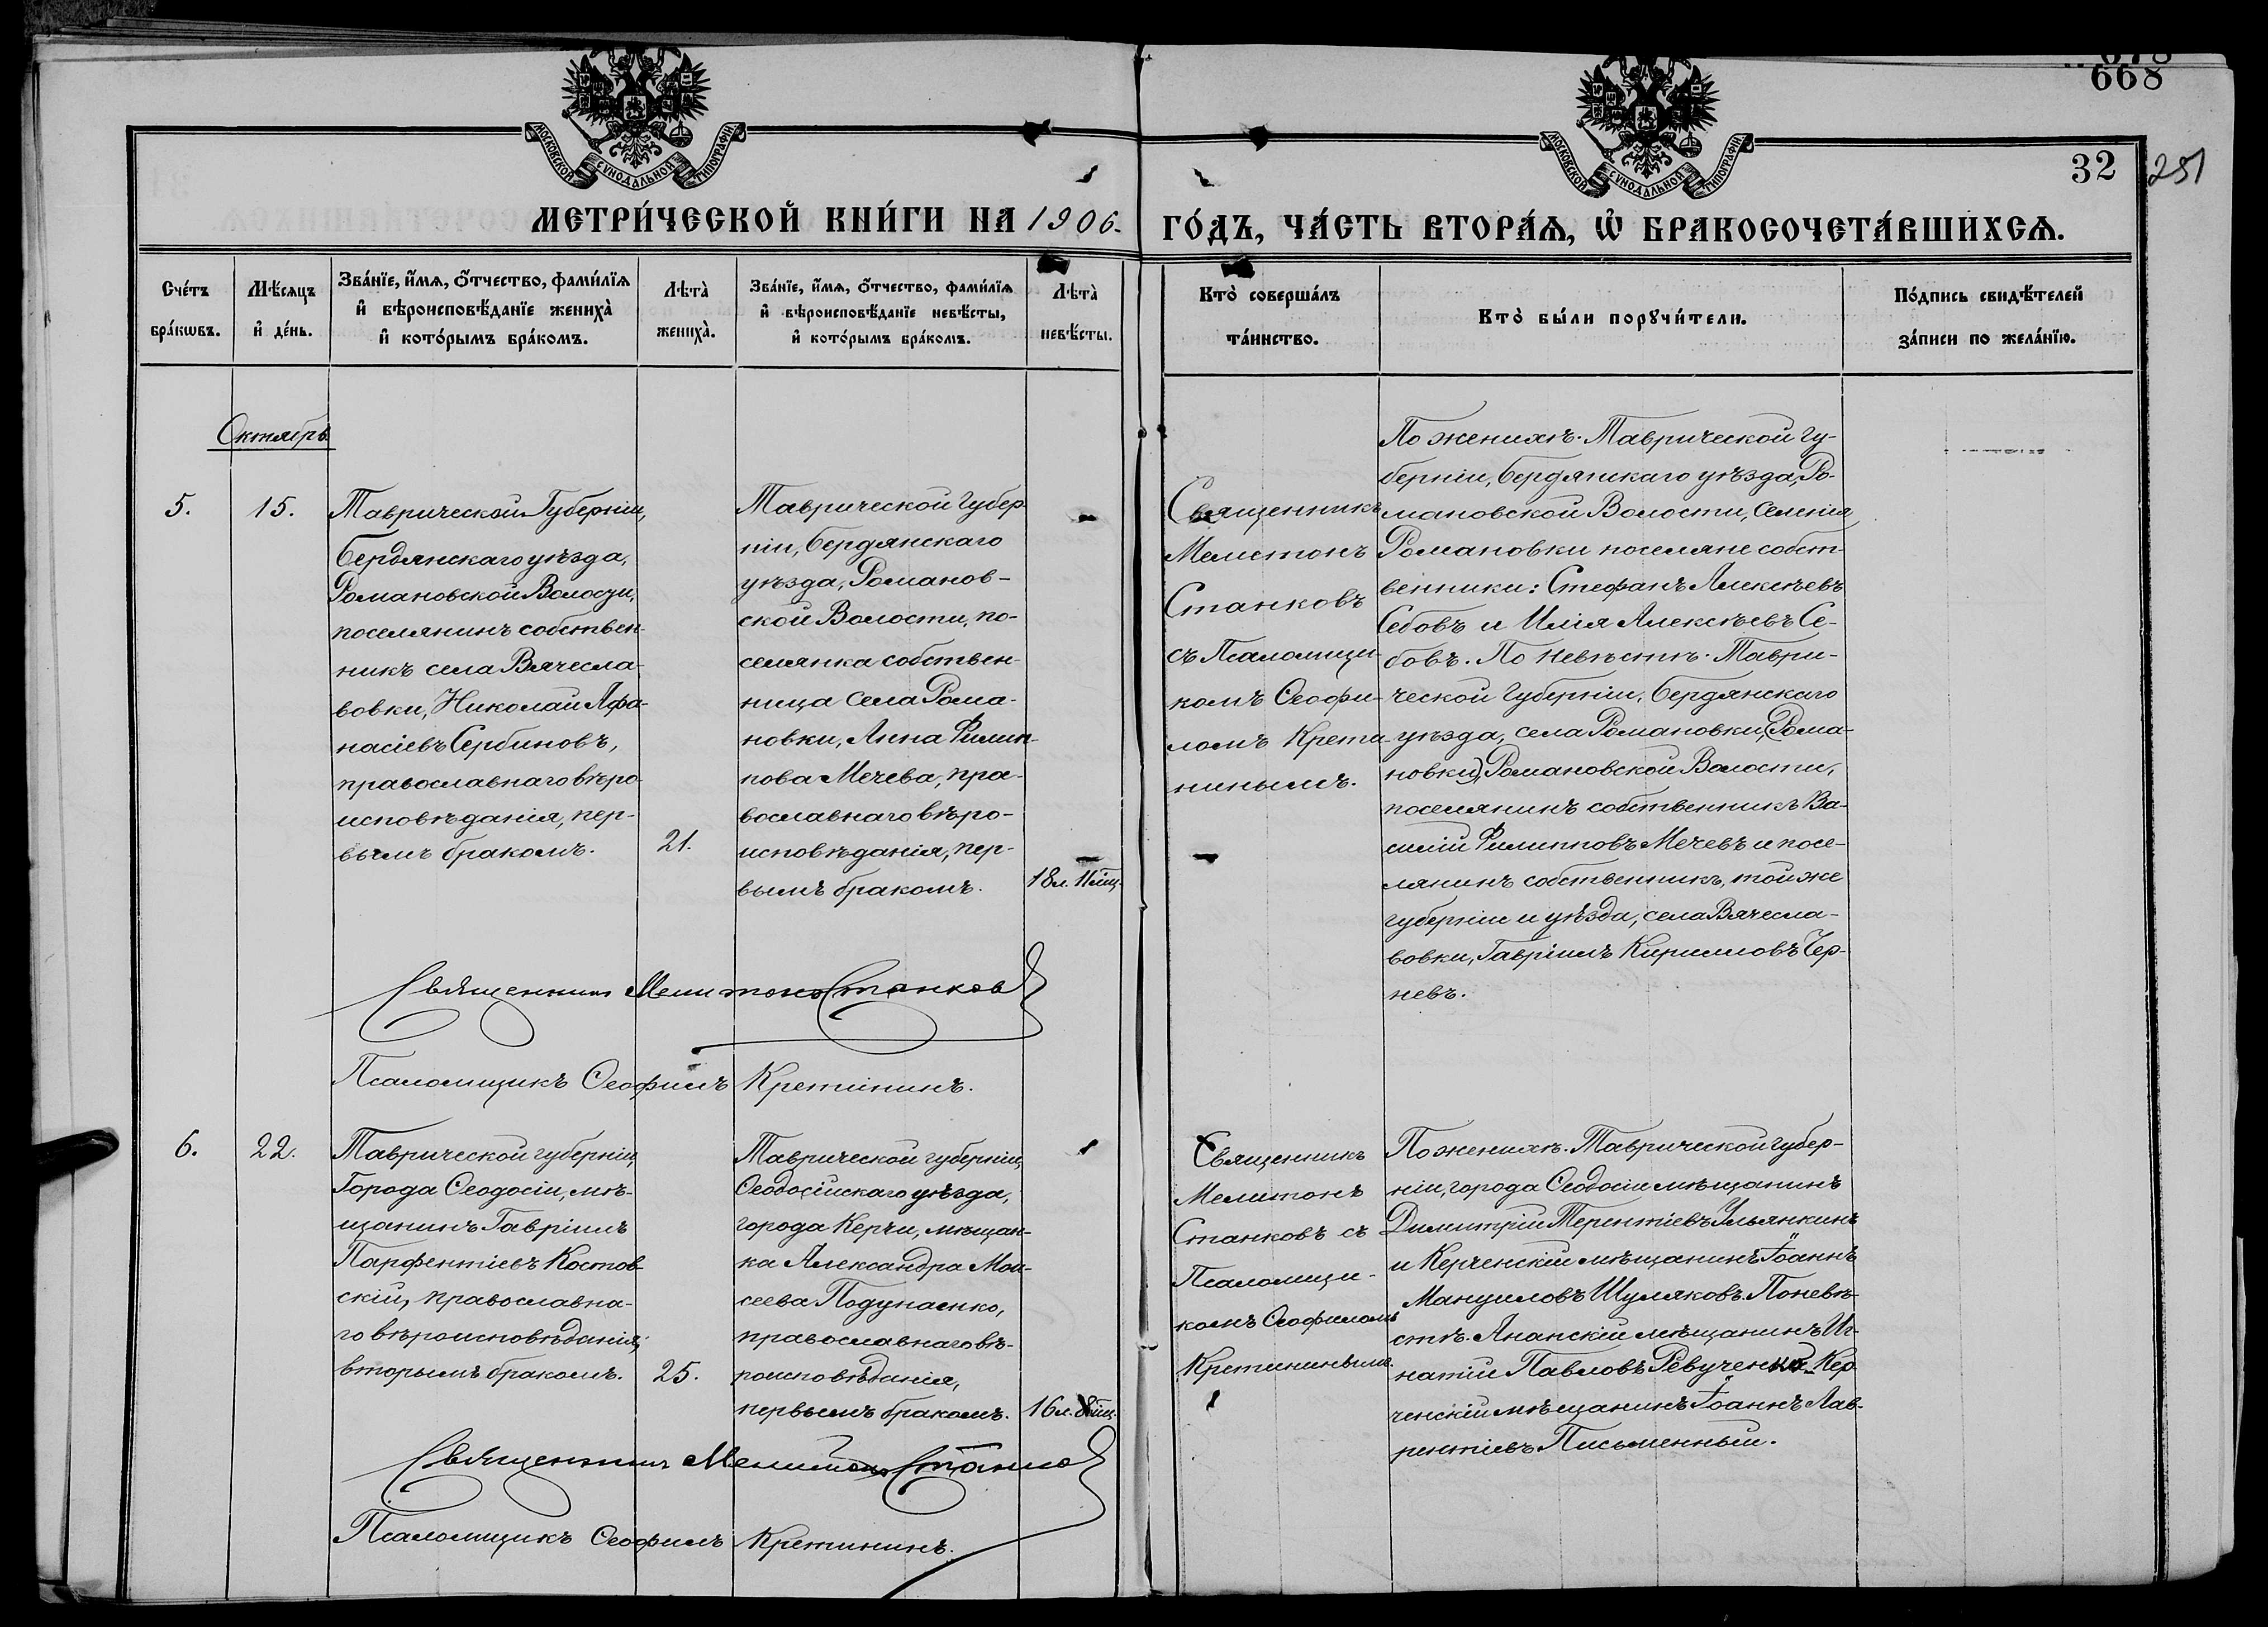 678
668
МОСКОВСКОЙ СѴНОДАЛЬНОЙ ТИПОГРАФІИ
МОСКОВСКОЙ СѴНОДАЛЬНОЙ ТИПОГРАФІИ
32
251
МЕТРИ́ЧЕСКОЙ КНИ́ГИ НА 1906.
ГО́ДЪ, ЧА́СТЬ ВТОРА́Ѧ, Ѡ҆ БРАКОСОЧЕТА́ВШИХСѦ.
Сче́тъ бра́кѡвъ.
Мѣ́сѧцъ и҆ де́нь.
Зва́нїе, и҆́мѧ, ѻ҆́тчество, фами́лїѧ
и҆ вѣроисповѣ́данїе жениха̀
и҆ кото́рымъ бра́комъ.
Лѣта̀ жениха̀.
Зва́нїе, и҆́мѧ, ѻ҆́тчество, фами́лїѧ
и҆ вѣроисповѣ́данїе невѣ́сты,
и҆ кото́рымъ бра́комъ.
Лѣта̀ невѣ́сты.
Кто̀ соверша́лъ
та́инство.
Кто̀ бы́ли порꙋчи́тели.
По́дпись свидѣ́телей
за́писи по жела́нїю.
Октябрь
5.
15.
Таврической Губерніи,
Бердянскаго уѣзда,
Романовской Волости,
поселянинъ собствен-
никъ села Вячесла-
вовки, Николай Афа-
насіевъ Сербиновъ,
православнаго вѣро-
исповѣданія, пер-
вымъ бракомъ.
21.
Таврической Губер-
ніи, Бердянскаго
уѣзда, Романов-
ской Волости, по-
селянка собствен-
ница села Рома-
новки, Анна Филип-
пова Мечева, пра-
вославнаго вѣро-
исповѣданія, пер-
вымъ бракомъ.
18 л. 11 мѣц.
Священникъ
Мелитонъ
Станковъ
съ Псаломщи-
комъ Ѳеофи-
ломъ Крети-
нинымъ.
По женихѣ. Таврической гу-
берніи, Бердянскаго уѣзда, Ро-
мановской Волости, селенія
Романовки поселяне собст-
венники: Стефанъ Алексѣевъ
Себовъ и Илія Алексѣевъ Се-
бовъ. По невѣстѣ. Таври-
ческой Губерніи, Бердянскаго
уѣзда, села Романовки, (Рома-
новки), Романовской Волости,
поселянинъ собственникъ Ва-
силій Филипповъ Мечевъ и посе-
лянинъ собственникъ, той же
губерніи и уѣзда, села Вячесла-
вовки, Гавріилъ Кирилловъ Чер-
невъ.
Священникъ Мелитонъ Станковъ
Псаломщикъ Ѳеофилъ Кретининъ.
6.
22.
Таврической губерніи,
Города Ѳеодосіи, мѣ-
щанинъ Гавріилъ
Парфентіевъ Костов-
скій, православна-
го вѣроисповѣданія,
вторымъ бракомъ.
25.
Таврической губерніи,
Ѳеодосійскаго уѣзда,
города Керчи, мѣщан-
ка Александра Мои-
сеева Подунаенко,
православнаго вѣ-
роисповѣданія,
первымъ бракомъ.
16 л. 8 мѣц.
Священникъ
Мелитонъ
Станковъ съ
Псаломщи-
комъ Ѳеофиломъ
Кретининымъ.
По женихѣ. Таврической губер-
ніи, города Ѳеодосіи мѣщанинъ
Димитрій Терентіевъ Ульянкинъ
и Керченскій мѣщанинъ Іоаннъ
Мануиловъ Шуляковъ. По невѣ-
стѣ. Анапскій мѣщанинъ Иг-
натій Павловъ Ревученко. Кер-
ченскій мѣщанинъ Іоаннъ Лав-
рентіевъ Письменный.
Священникъ Мелитонъ Станков
Псаломщикъ Ѳеофилъ Кретининъ.